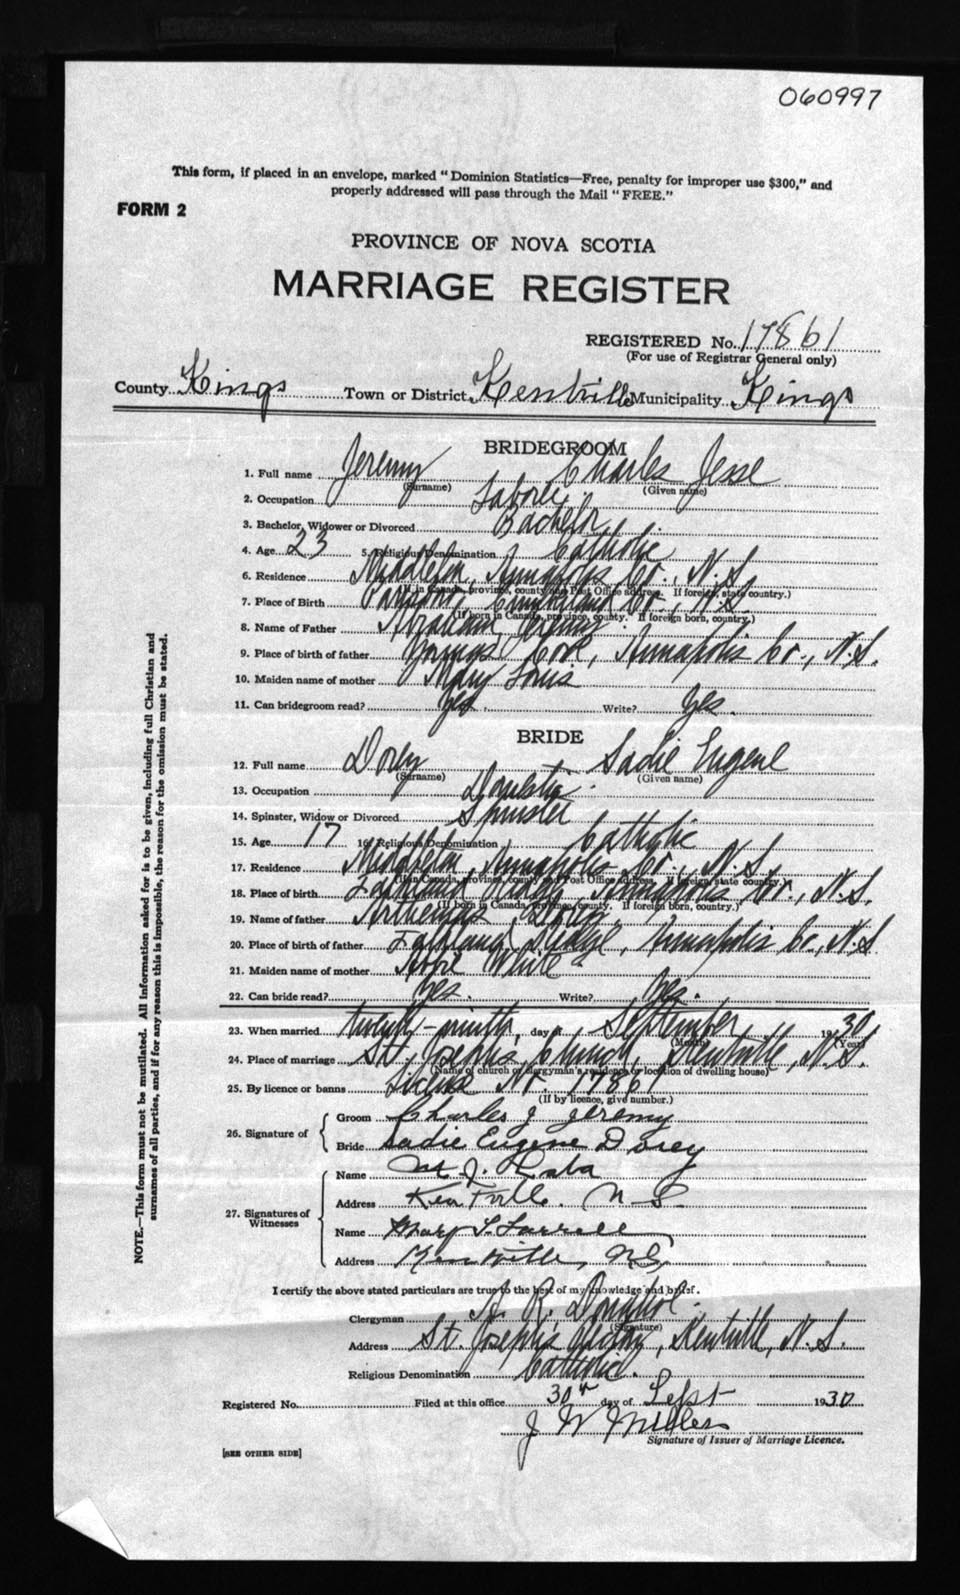 060997
This form, if placed in an envelope, marked "Dominion Statistics—Free, penalty for improper use $300," and
properly addressed will pass through the Mail "FREE."
FORM 2
PROVINCE OF NOVA SCOTIA
MARRIAGE REGISTER
REGISTERED No. 17861
(For use of Registrar General only)
County Kings Town or District Kentville Municipality Kings
BRIDEGROOM
1. Full name Jeremy Charles Jesse
(Surname) (Given name)
2. Occupation Laborer
3. Bachelor, Widower or Divorced Bachelor
4. Age 23 5. Religious Denomination Catholic
6. Residence Middleton, Annapolis Co., N.S.
(If in Canada, province, county and Post Office address. If foreign, state country.)
7. Place of Birth Cumberland Co., N.S.
(If born in Canada, province, county. If foreign born, country.)
8. Name of Father Abraham Jeremy
9. Place of birth of father Cove, Annapolis Co., N.S.
10. Maiden name of mother Mary
11. Can bridegroom read? Yes. Write? Yes.
BRIDE
12. Full name Dorey Sadie Eugene
(Surname) (Given name)
13. Occupation Domestic
14. Spinster, Widow or Divorced Spinster
15. Age 17 16. Religious Denomination Catholic
17. Residence Middleton, Annapolis Co., N.S.
(If in Canada, province, county and Post Office address. If foreign, state country.)
18. Place of birth Annapolis Co., N.S.
(If born in Canada, province, county. If foreign born, country.)
19. Name of father Dorey
20. Place of birth of father Annapolis Co., N.S.
21. Maiden name of mother White
22. Can bride read? Yes. Write? Yes.
23. When married twenty-ninth day of September 1930
(Month) (Year)
24. Place of marriage St. Joseph's Church, Kentville, N.S.
(Name of church or clergyman's residence or location of dwelling house)
25. By licence or banns License No. 17861
(If by licence, give number.)
26. Signature of
Groom Charles J Jeremy
Bride Sadie Eugene Dorey
27. Signatures of Witnesses
Name M. J.
Address Kentville. N.S.
Name Mary
Address Kentville, N.S.
I certify the above stated particulars are true to the best of my knowledge and belief.
Clergyman R.
(Signature)
Address St. Joseph's Kentville, N.S.
Religious Denomination Catholic.
Registered No. Filed at this office 30th day of Sept 1930
J W
Signature of Issuer of Marriage Licence.
[SEE OTHER SIDE]
NOTE.—This form must not be mutilated. All information asked for is to be given, including full Christian and
surnames of all parties, and if for any reason this is impossible, the reason for the omission must be stated.